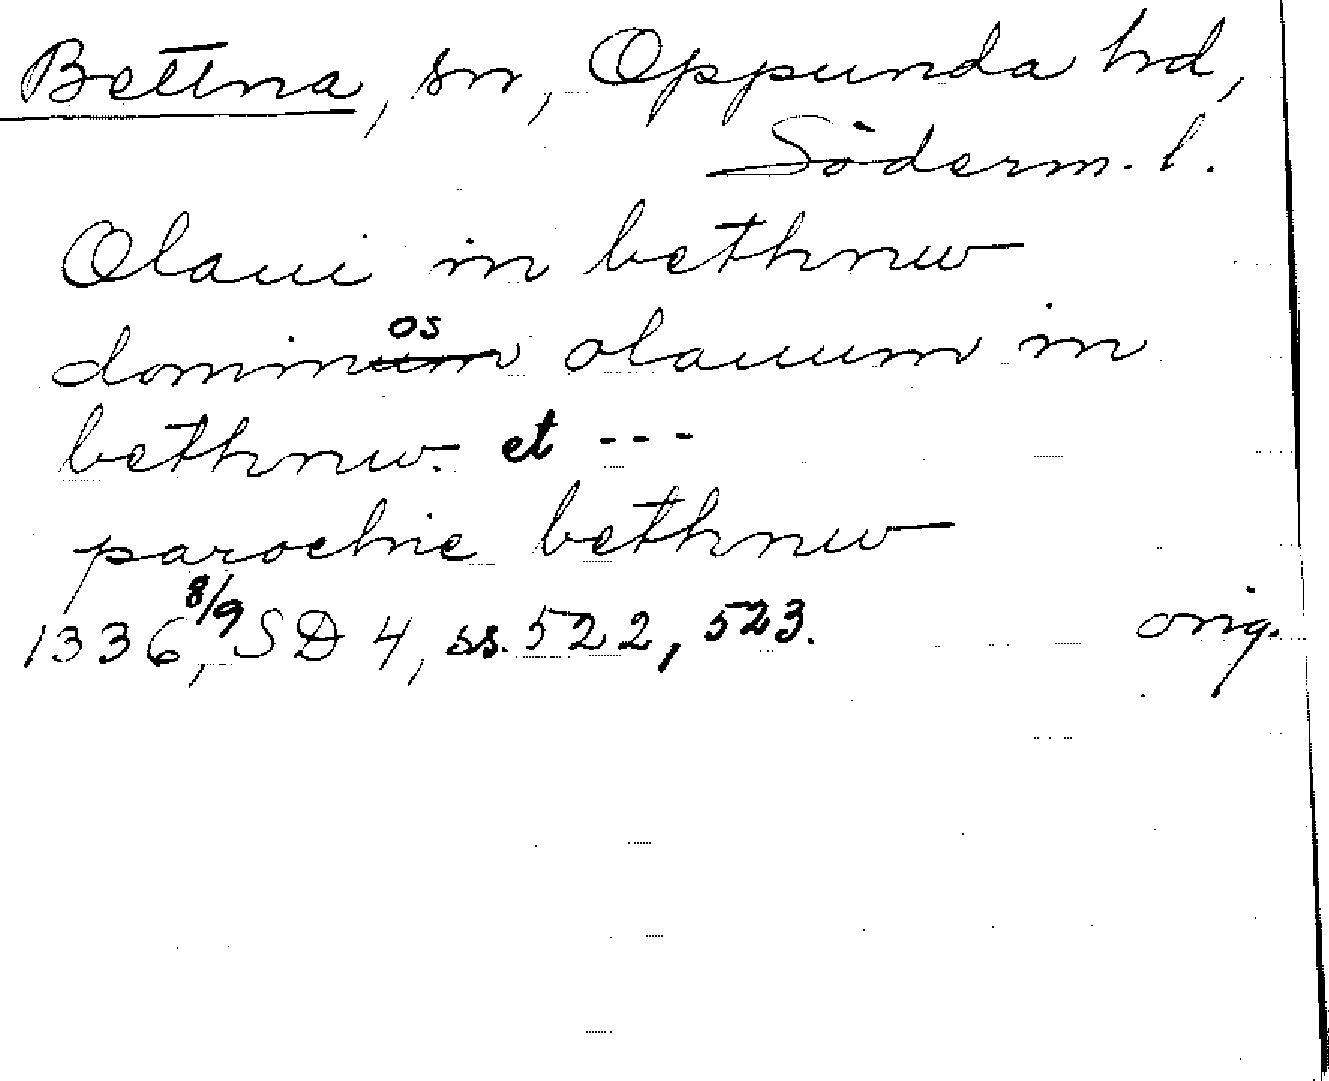 Bettna, sn, Oppunda hd,
Söderm. l.
Olaui in bethnw
dominos olauum in
bethnw. et ---
parochie bethnw
1336 8/9, SD 4, ss. 522, 523. orig.